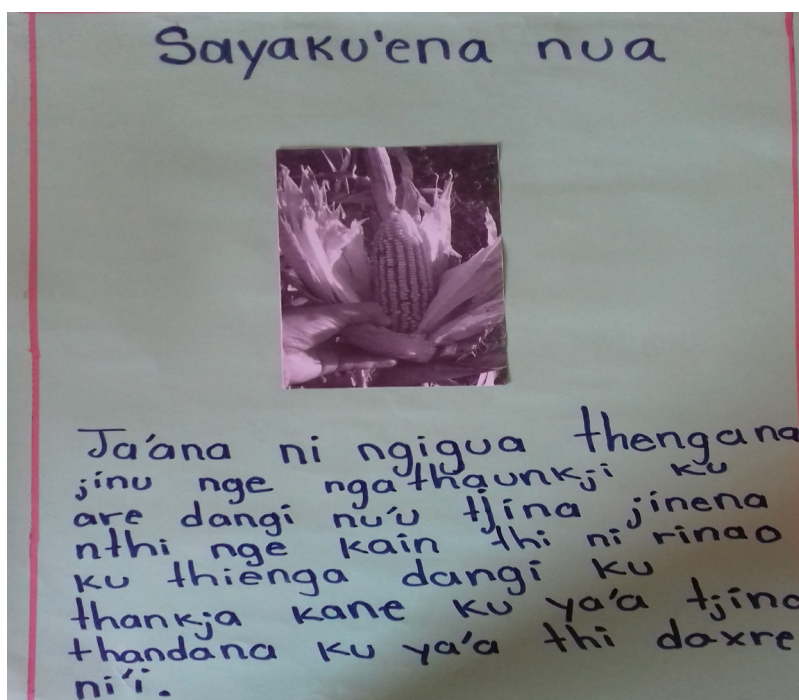 Sayaku'ena nua
Ja'ana ni ngigua thengana
jinu nge ngathaunkji ku
are dangi nu'u tjina jinena
nthi nge kain thi ni rinao
ku thienga dangi ku
thankja kane ku ya'a tjina
thandana ku ya'a thi daxre
ni'i.